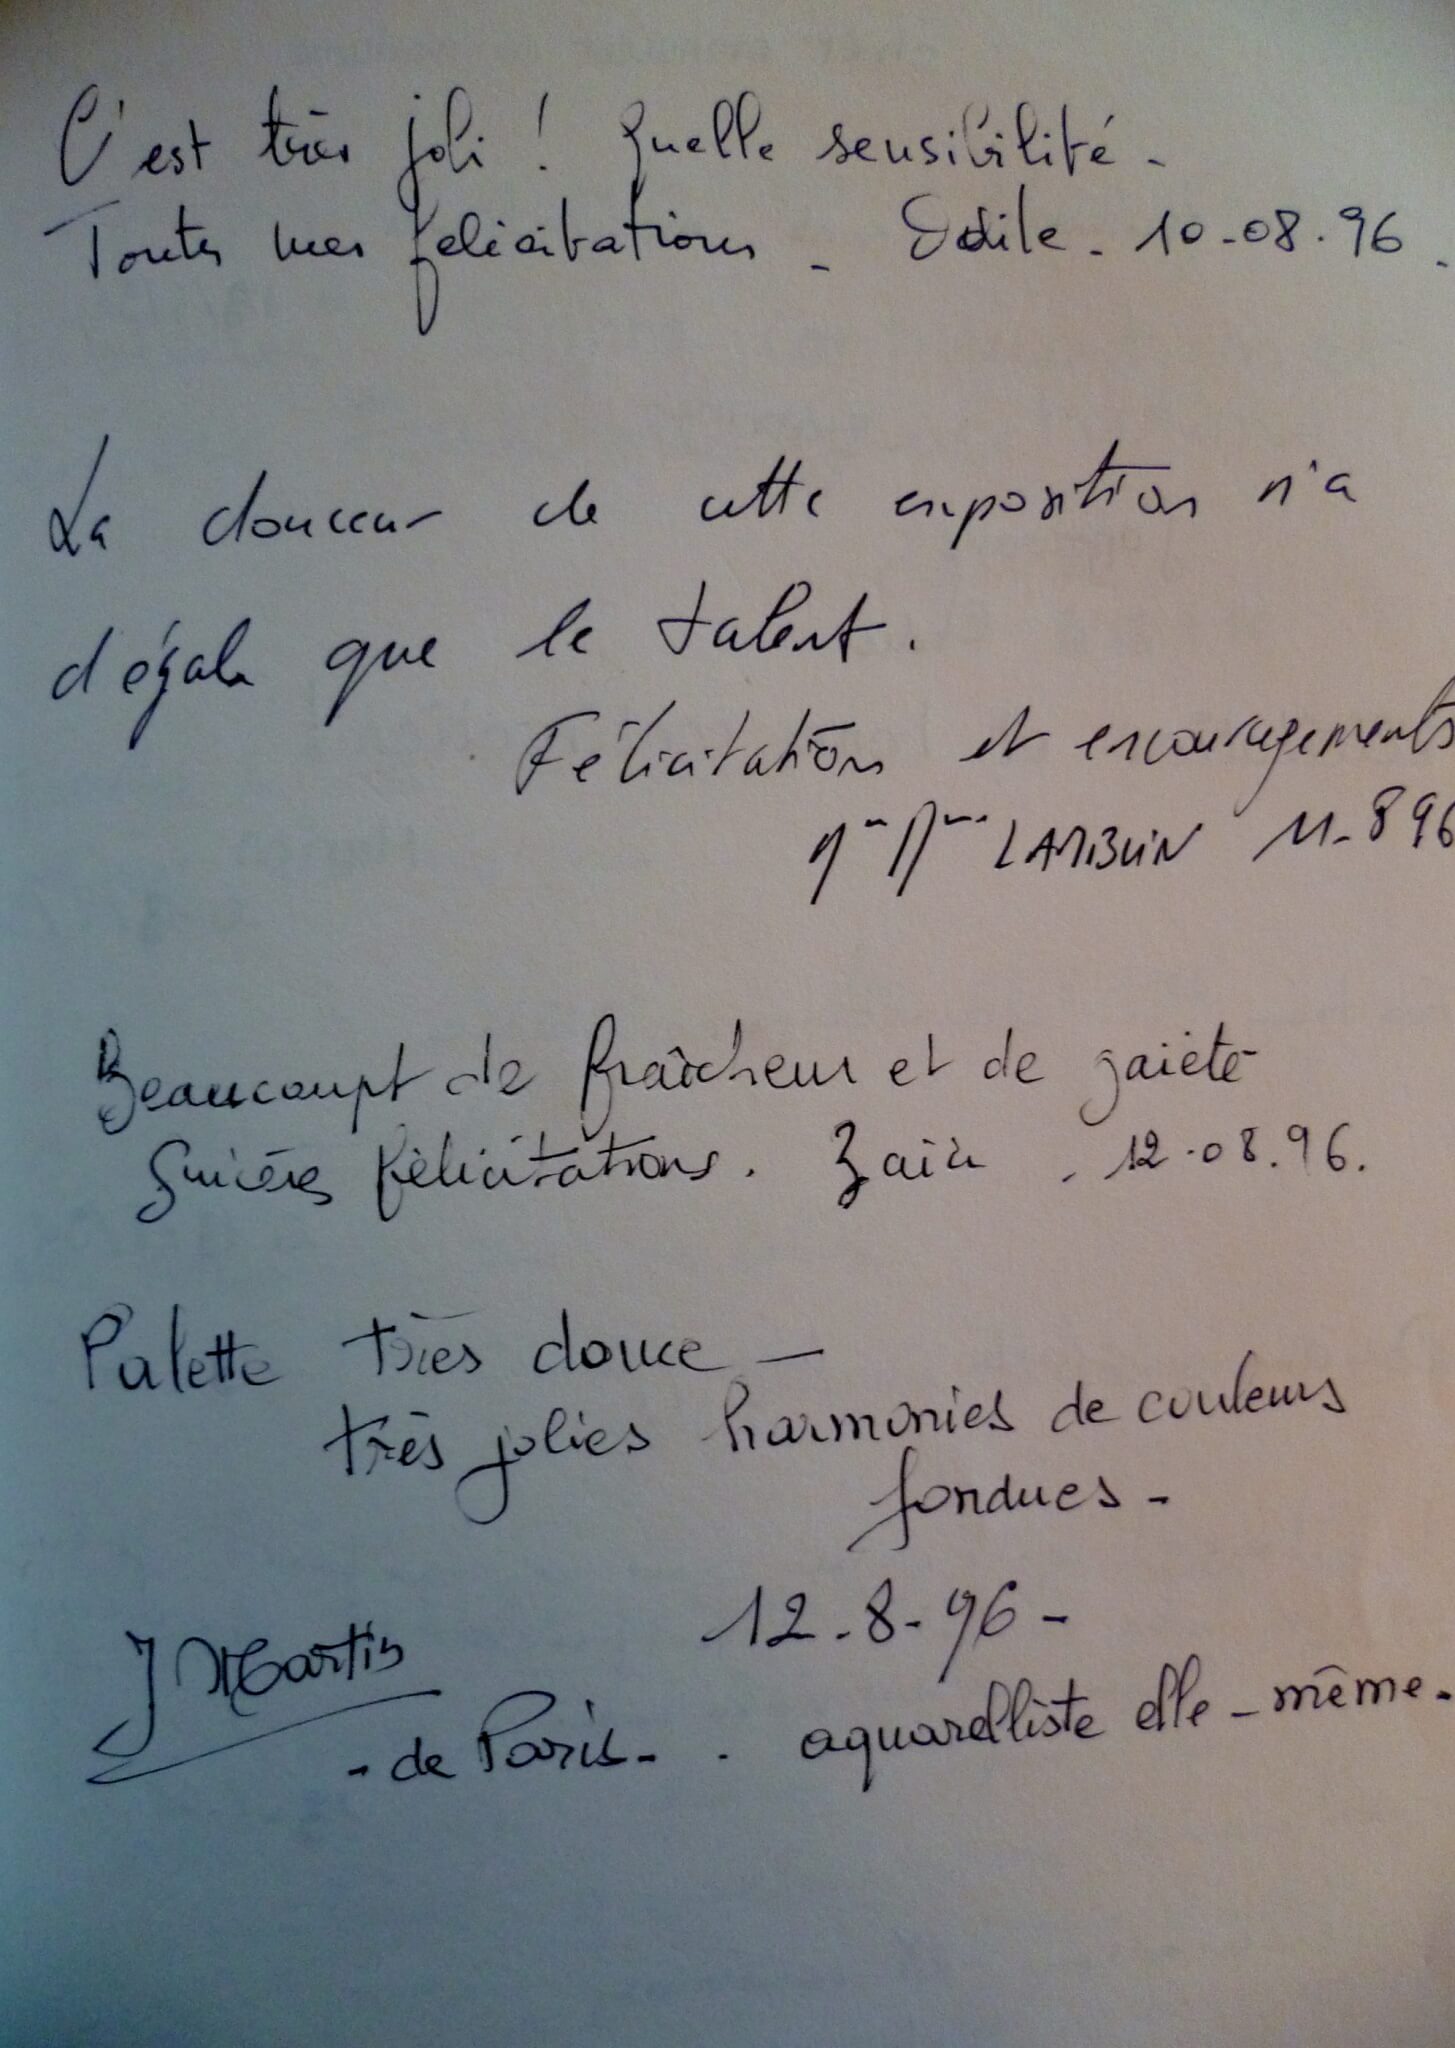 C'est très joli ! Quelle sensibilité -
Toutes mes félicitations - Odile - 10-08.96.
La douceur de cette exposition n'a
d'égale que le talent.
Félicitations et encouragements
11-8 96
Beaucoupt de fraîcheur et de gaieté
Sincères félicitations. 12.08.96.
Palette très douce -
très jolies harmonies de couleurs
fondues -
12-8-96 -
J Martin
- de Paris - . aquarelliste elle-même -